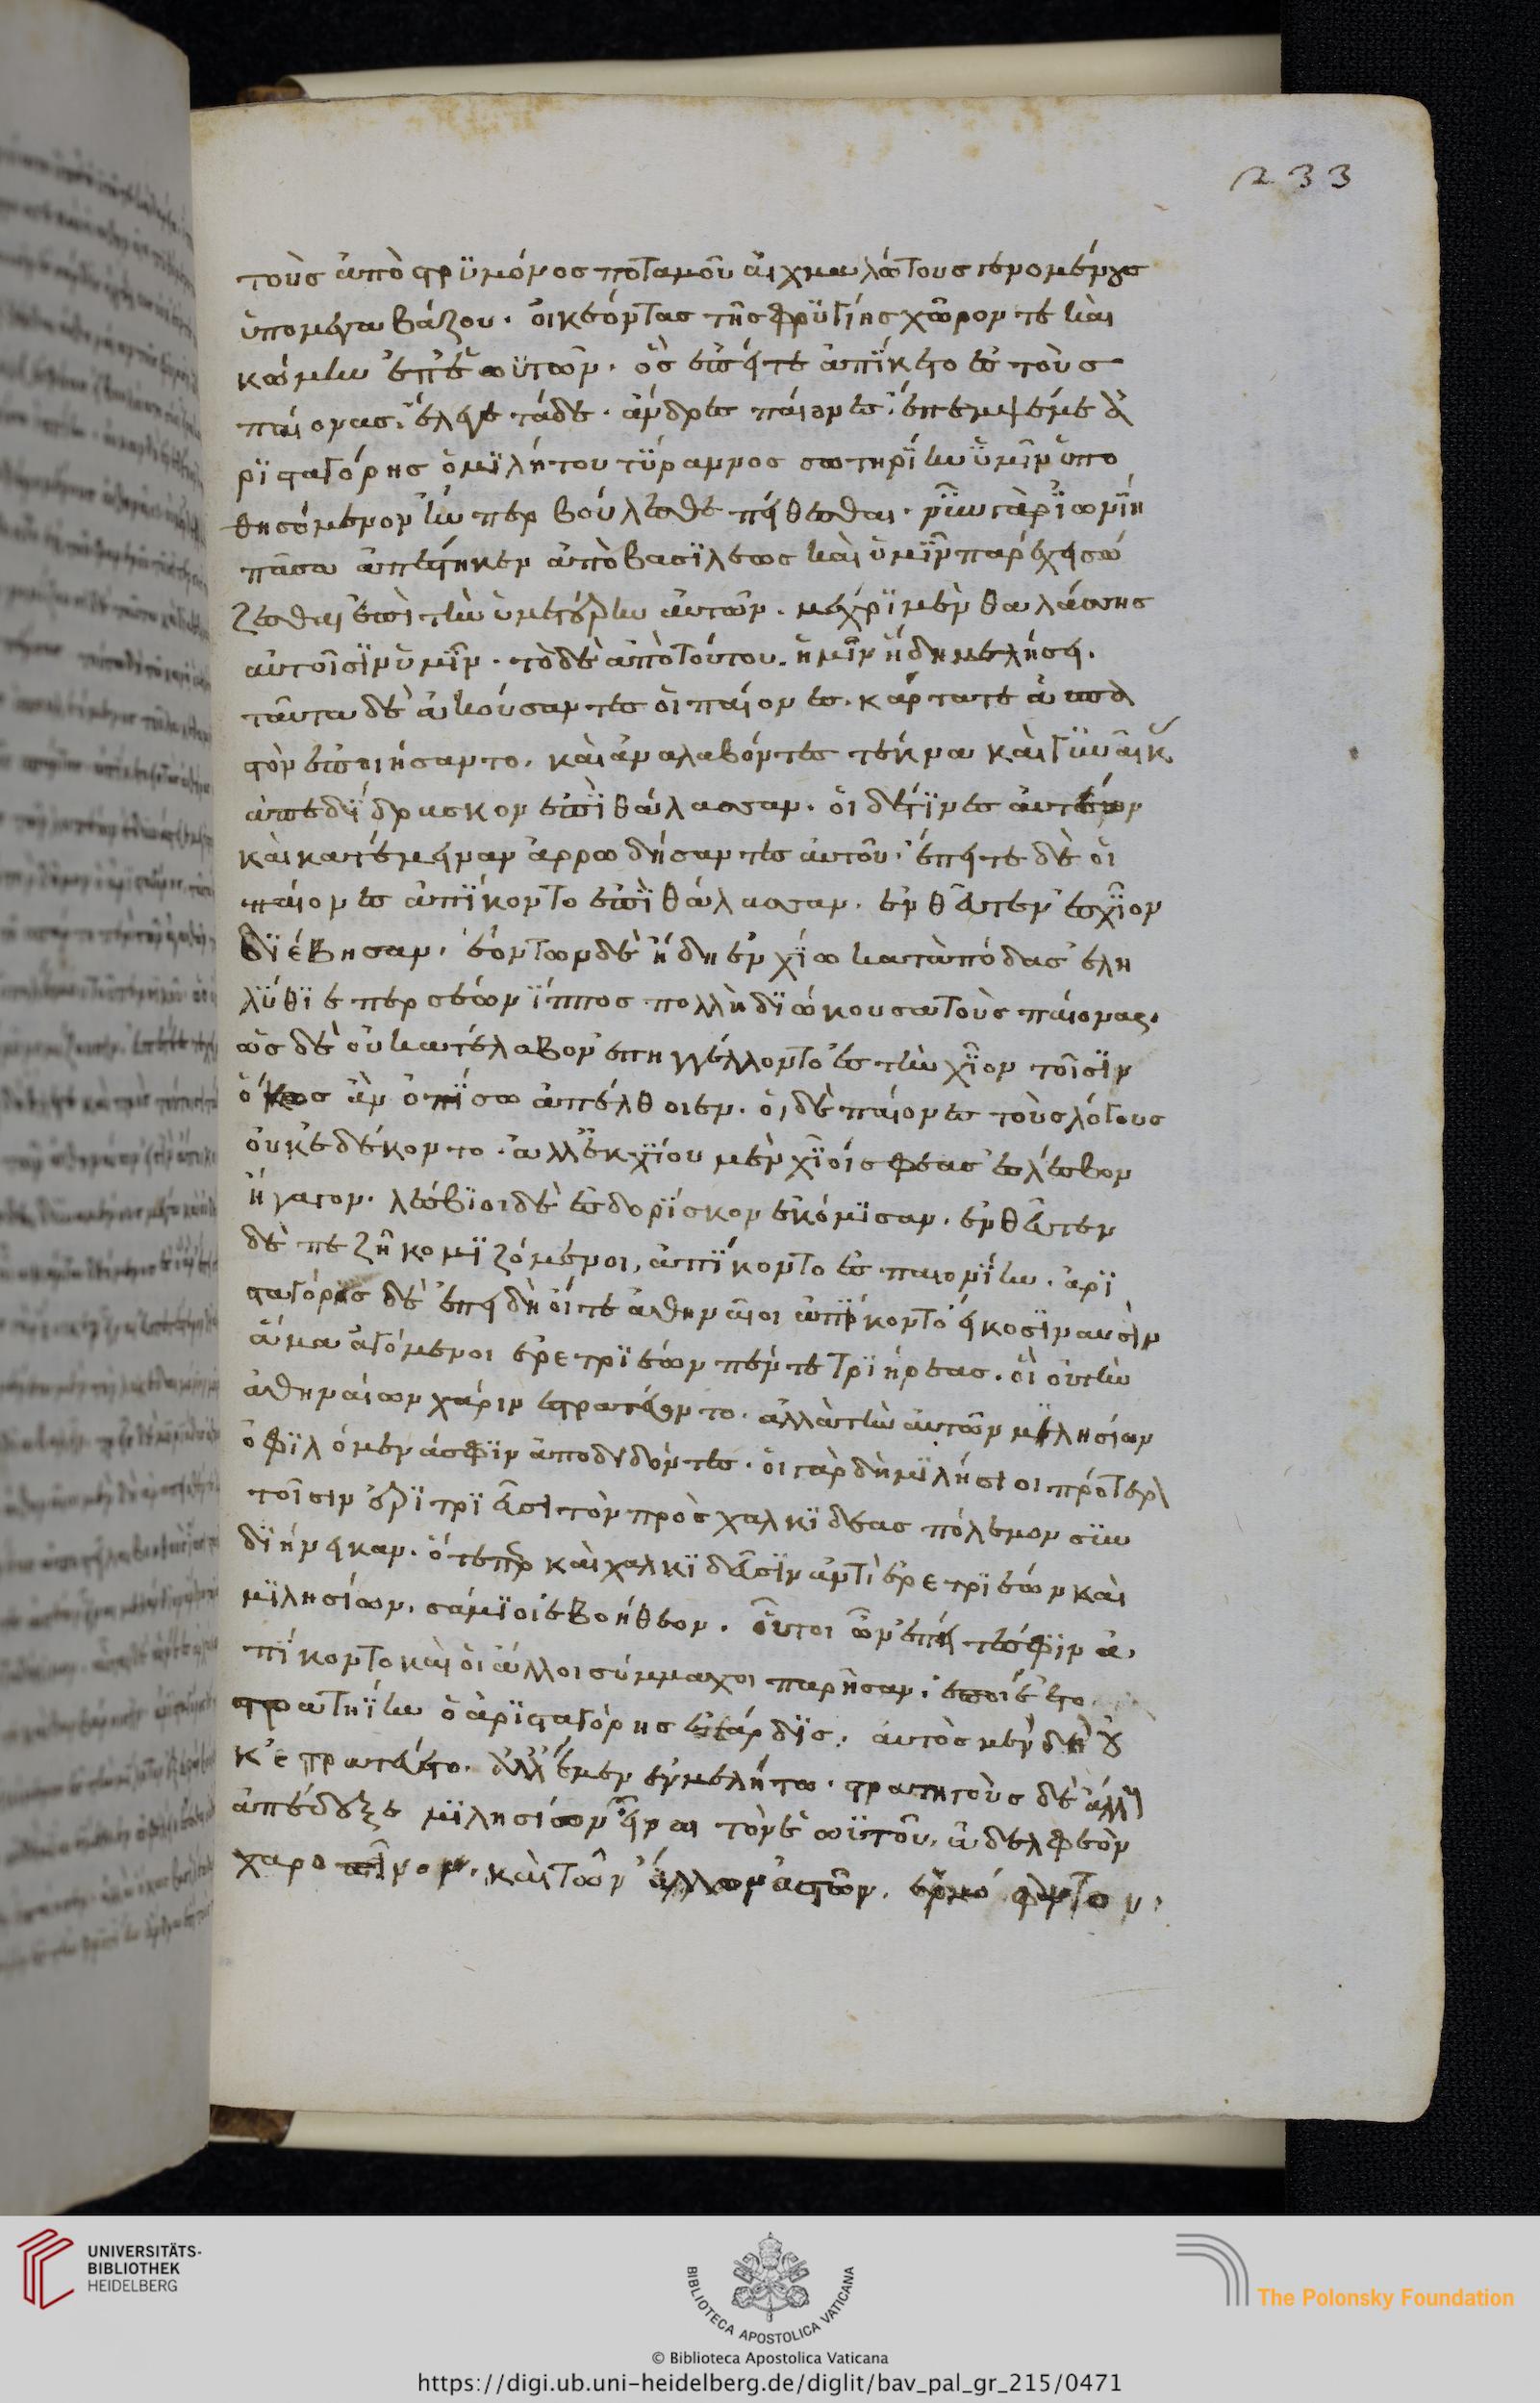 233
τοὺς ἀπὸ στρϋμόνος ποταμοῦ αἰχμαλώτους γενομένους
ὑπομεγαβάζου. οἰκέοντας τῆς φρϋγίης χῶρον τε καὶ
κώμην ἐπ' ἐωϋτῶν. ὃς ἐπείτε ἀπΐκετο ἐς τοὺς
παίονας. ἔλεγε τάδε. ἄνδρες παίονες. ἔπεμψέ με ἀ
ρϊσταγόρης ὁ μϊλήτου τϋραννος σωτηρΐην ὑμῖν ὑπο
θησόμενον ἤν περ βούλεσθε πείθεσθαι. νῦν γὰρ ϊωνΐη
πᾶσα ἀπέστηκεν ἀπὸ βασϊλέως καὶ ὑμῖν παρέχει σώ
ζεσθαι ἐπὶ τὴν ὑμετέρην αὐτῶν. μέχρϊ μὲν θαλάσσης
αὐτοῖσϊν ὑμῖν. τὸ δὲ ἀπὸ τούτου. ἡμῖν ἤδη μελήσει.
ταῦτα δὲ ἀκούσαντες οἱ παίονες. κάρτα τε ἀσπα
στὸν ἐποιήσαντο. καὶ ἀναλαβόντες τέκνα καὶ γϋναῖκας
ἀπεδΐδρασκον ἐπϊ θάλασσαν. οἱ δέ τϊνες αὐτέων
καὶ κατέμειναν ἀρρωδήσαντες αὐτοῦ. ἐπείτε δὲ οἱ
παίονες ἀπΐκοντο ἐπϊ θάλασσαν. ἐνθεῦτεν ἐς χΐον
δϊέβησαν. ἐόντων δὲ ἤδη ἐν χΐω κατὰ πόδας ἐλη
λϋθϊε περσέων ΐππος πολλὴ δϊώκουσα τοὺς παίονας.
ὡς δὲ οὐ κατέλαβον ἐπηγγέλλοντο ἐς τὴν χΐον τοῖσϊν
ὅκως ἂν ὀπΐσω ἀπέλθοιεν. οἱ δὲ παίονες τοὺς λόγους
οὐκ ἐδέκοντο. ἀλλ' ἐκ χΐου μὲν χῖοί σφεας ἐς λέσβον
ἤγαγον. λέσβϊοι δὲ ἐς δορΐσκον ἐκόμϊσαν. ἐνθεῦτεν
δὲ πεζῆ κομϊζόμενοι, ἀπΐκοντο ἐς παιονΐην. ἀρϊ
σταγόρης δὲ ἐπειδὴ οἵ τε ἀθηναῖοι ἀπΐκοντο εἴκοσϊ ναυσὶν
ἅμα ἀγόμενοι ἐρετρϊέων πέντε τρϊήρεας. οἳ οὐ τὴν
ἀθηναίων χάριν ἐστρατεύοντο. ἀλλὰ τὴν αὐτῶν μϊλησίων
ὀφϊλόμενά σφϊν ἀποδϊδόντες. οἱ γὰρ δὴ μϊλήσϊοι πρότερον
τοῖσιν ἐρϊτρϊεῦσι τὸν πρὸς χαλκϊδέας πόλεμον συν
δϊήνεικαν. ὅτε περ καὶ χαλκϊδεῦσϊν ἀντὶ ἐρετρϊέων καὶ
μϊλησίων. σάμϊοι ἐβοήθεον. οὗτοι ὦν ἐπεί τέ σφϊν ἀ
πΐκοντο καὶ οἱ ἄλλοι σύμμαχοι παρῆσαν. ἐποιέετο
στρατηΐην ὁ ἀρϊσταγόρης ἐς σάρδϊς. αὐτὸς μὲν δὴ οὐ
κ ἐστρατεύετο. ἀλλ' ἔμενεν μϊλήτω. στρατηγοὺς δὲ ἄλλους
ἀπέδεξε μϊλησίων εἶναι τὸν ἑωϋτοῦ. ἀδελφεὸν
χαροπῖνον. καὶ τῶν ἄλλων ἀστῶν. ἑρμόφαντον.
UNIVERSITÄTS-
BIBLIOTHEK
HEIDELBERG
BIBLIOTECA APOSTOLICA VATICANA
The Polonsky Foundation
© Biblioteca Apostolica Vaticana
https://digi.ub.uni-heidelberg.de/diglit/bav_pal_gr_215/0471